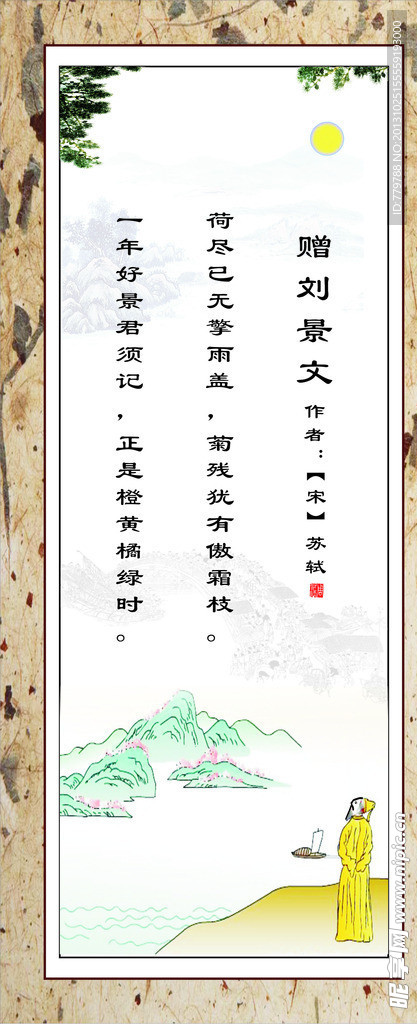 赠刘景文
作者：【宋】苏轼
荷尽已无擎雨盖，菊残犹有傲霜枝。
一年好景君须记，正是橙黄橘绿时。
ID:779788 NO:20131025155559193000
昵享网 www.nipic.cn